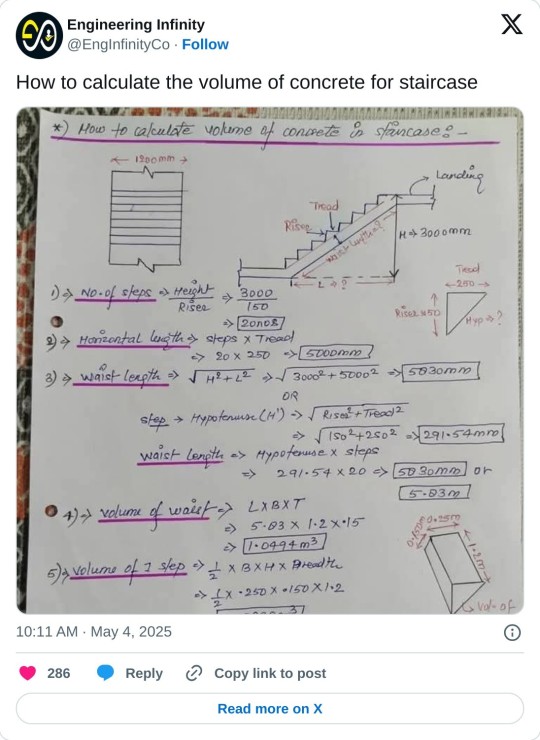 Engineering Infinity
@EngInfinityCo · Follow
How to calculate the volume of concrete for staircase
*) How to calculate volume of concrete in staircase:-
1200mm
Landing
Tread
Riser
waist length?
H → 3000mm
L → ?
Tread
250
Riser 150
Hyp → ?
1) ⇒ No. of steps ⇒ Height/Riser ⇒ 3000/150
⇒ 20nos
2) ⇒ Horizontal length ⇒ steps x Tread
⇒ 20 x 250 ⇒ 5000mm
3) ⇒ Waist length ⇒ √H²+L² ⇒ √3000²+5000² ⇒ 5830mm
OR
step → Hypotenuse (H') ⇒ √Riser²+Tread²
⇒ √150²+250² ⇒ 291.54mm
Waist length ⇒ Hypotenuse x steps
⇒ 291.54 x 20 ⇒ 5830mm or
5.83m
4) ⇒ volume of waist ⇒ LXBXT
⇒ 5.83 x 1.2 x .15
⇒ 1.0494m³
5) ⇒ volume of 1 step ⇒ 1/2 x B x H x Breadth
⇒ 1/2 x .250 x .150 x 1.2
0.25m
1.2m
Vol. of
10:11 AM · May 4, 2025
286 Reply Copy link to post
Read more on X